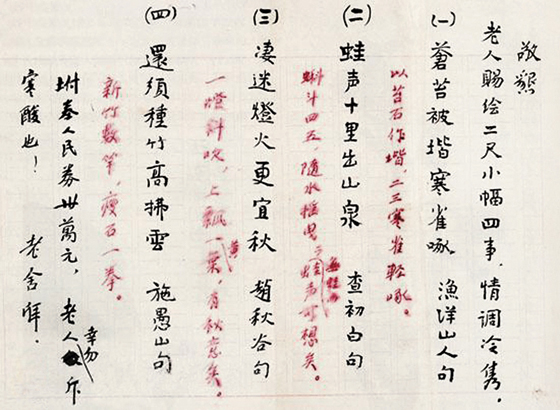 敬懇
老人賜绘二尺小幅四事，情调冷隽。
(一) 蒼苔被堦寒雀啄 漁洋山人句
以苔石作堦，二三寒雀輕啄。
(二) 蛙声十里出山泉 查初白句
蝌斗四五，隨水摇曳；蛙声可想矣。
(三) 凄迷燈火更宜秋 趙秋谷句
一燈斜吹，上飄一黄葉，有秋意矣。
(四) 還須種竹高拂雲 施愚山句
新竹數竿，瘦石一拳。
坿奉人民券卅萬元，老人幸勿斥
寒酸也！ 老舍拜.